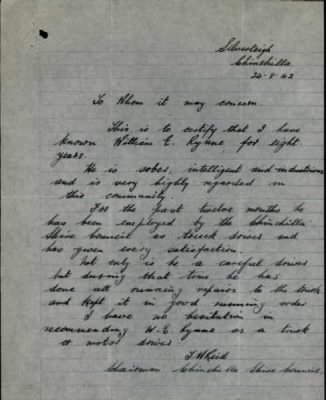 Silverleigh
Chinchilla
24-8-42
To Whom it may concern.
This is to certify that I have
known William E. Kynne for eight
years.
He is sober, intelligent and industrious
and is very highly regarded in
this community.
For the past twelve months he
has been employed by the Chinchilla
Shire Council as truck driver and
has given every satisfaction.
Not only is he a careful driver
but during that time he has
done all running repairs to the truck
and kept it in good running order
I have no hesitation in
recommending W.E. Kynne as a truck
or motor driver
Chairman Chinchilla Shire Council